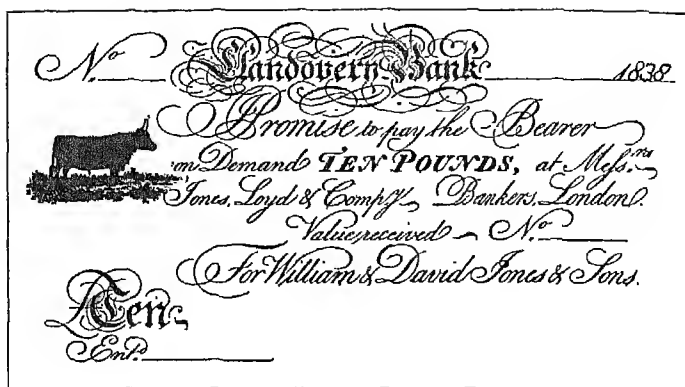 No 1838
Llandovery Bank
I Promise to pay the Bearer
on Demand TEN POUNDS, at Messrs.
Jones, Loyd & Compy. Bankers, London.
Value received No
For William & David Jones & Sons.
£Ten
Entd.